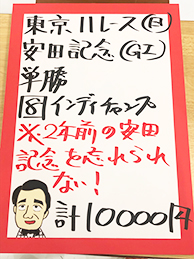 東京11レース(日)
安田記念(GI)
単勝
8インディチャンプ
※2年前の安田
記念を忘れられ
ない!
計10000円